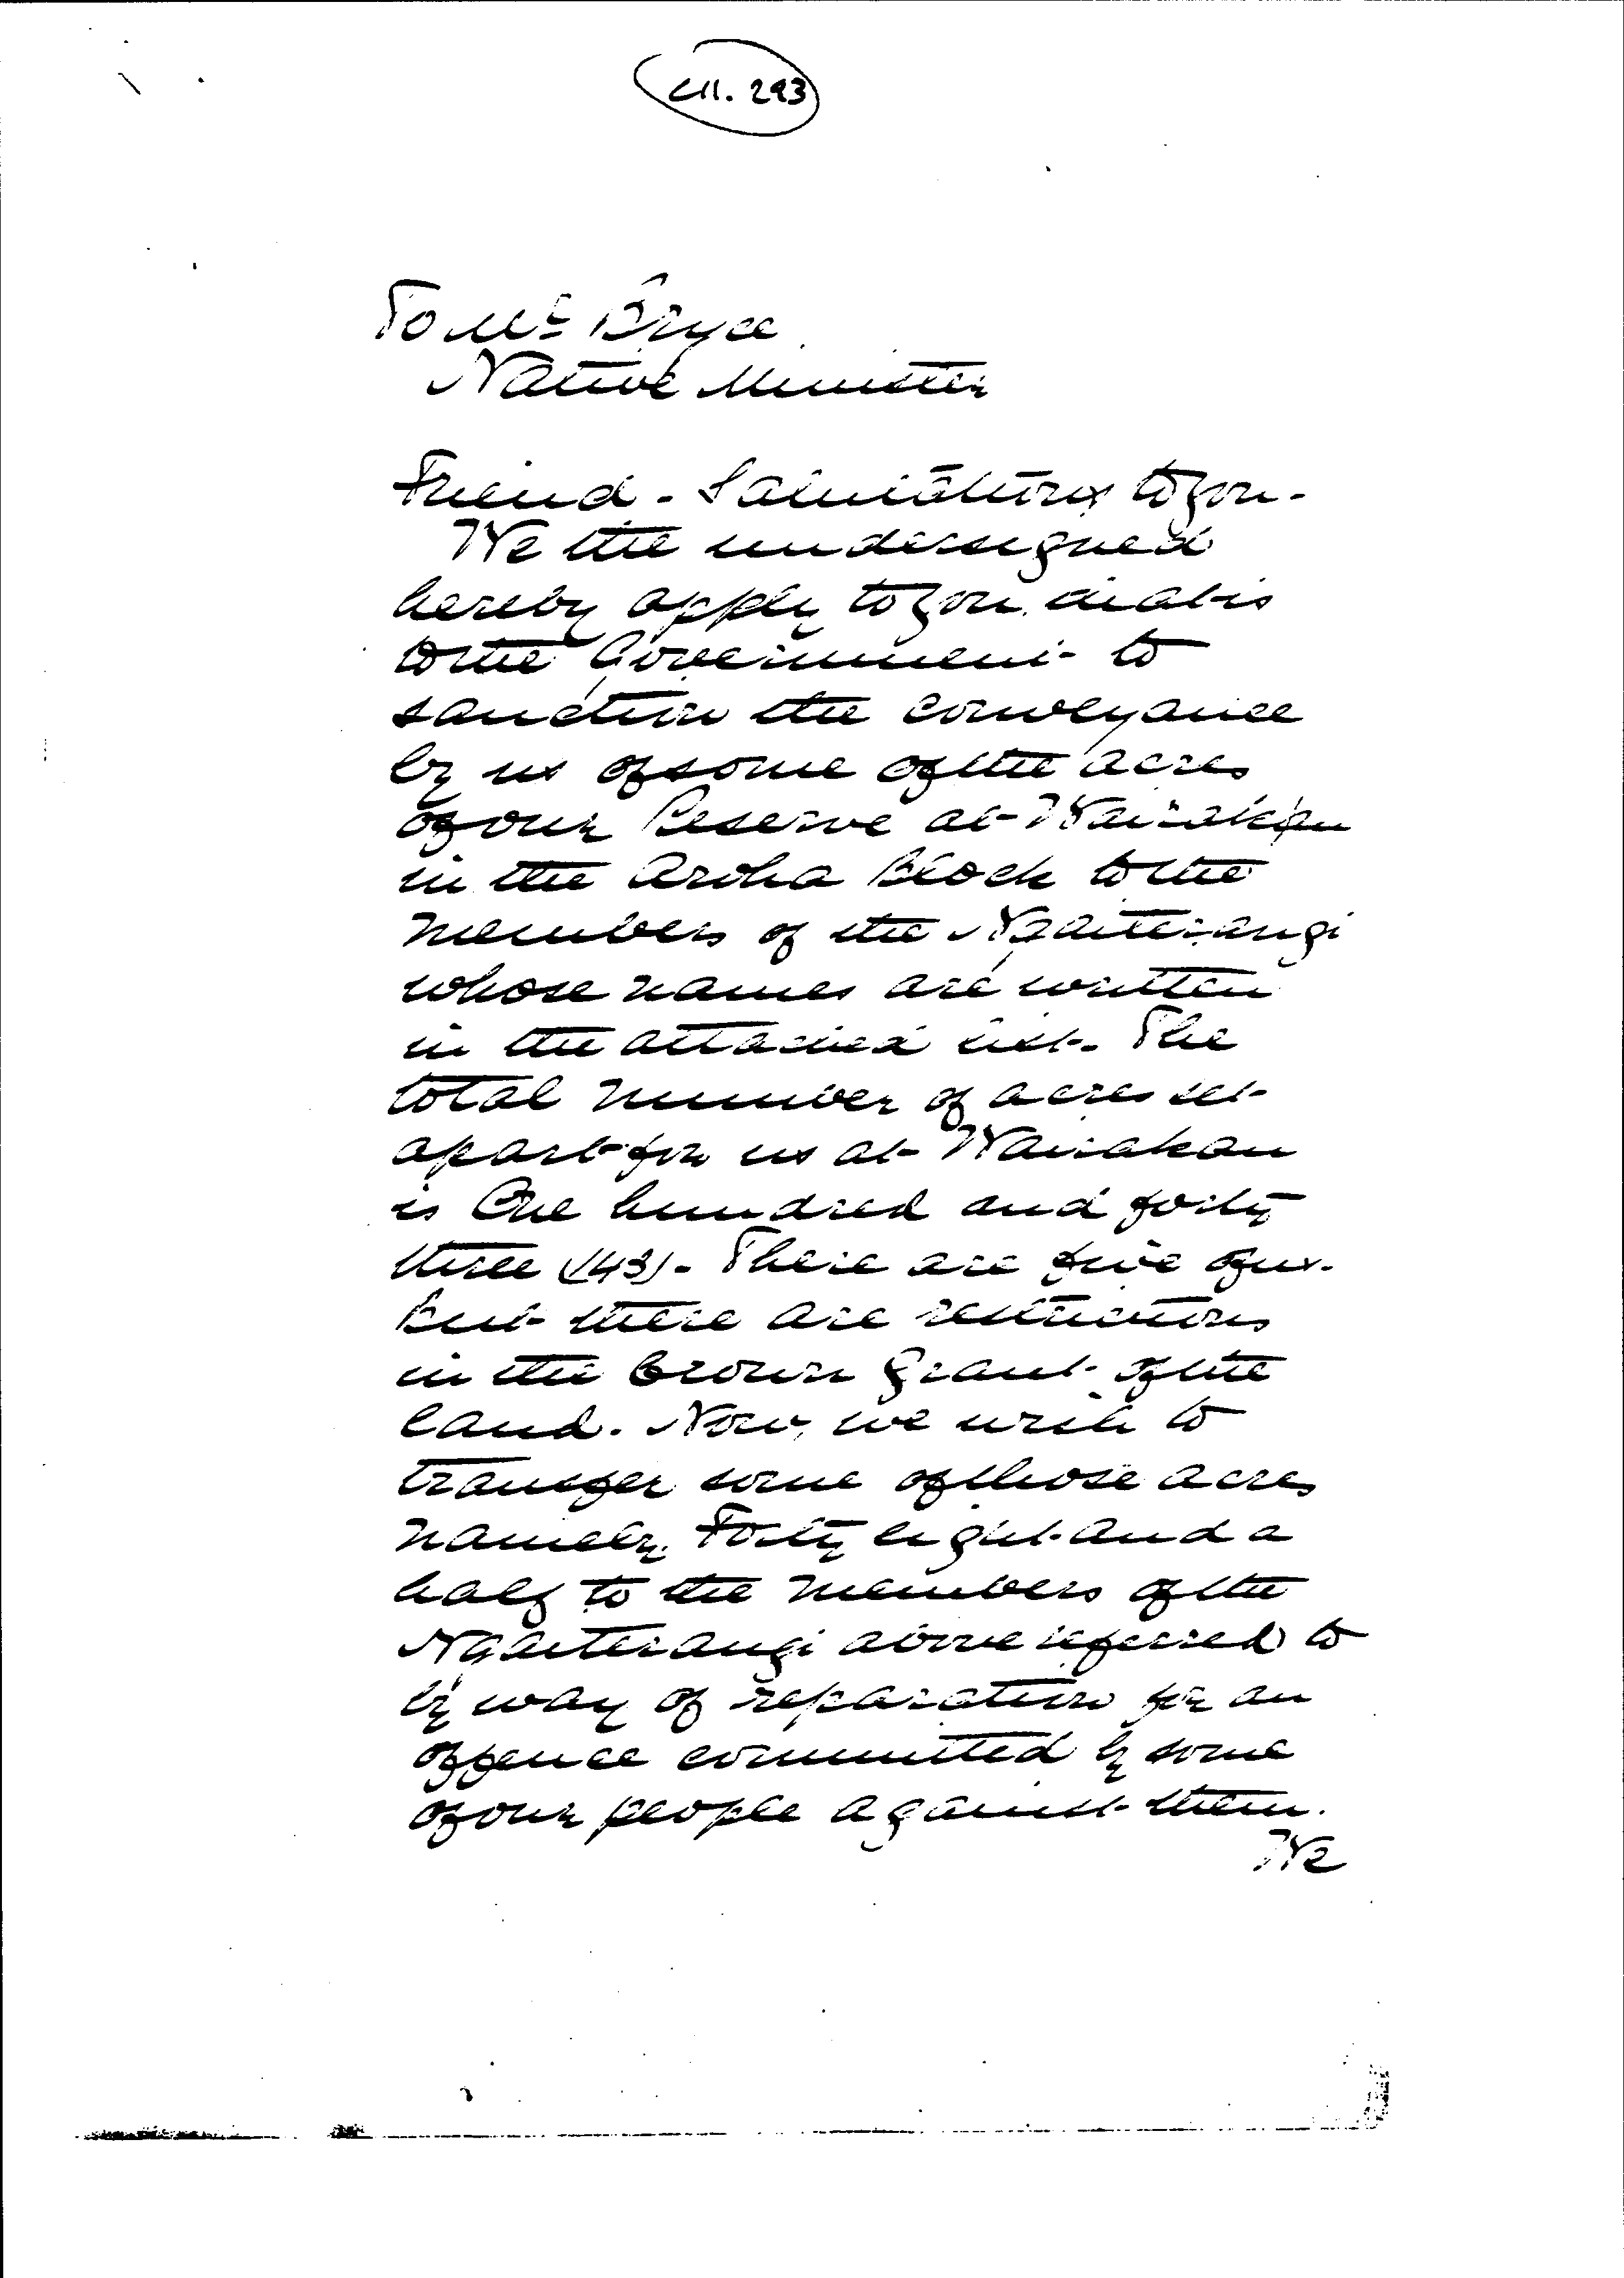 C11. 293
To Mr Bryce
Native Minister
Friend - Salutations to you -
We the undersigned
hereby apply to you that is
to the Government to
sanction the conveyance
by us of some of the acres
of our Reserve at Wairakau
in the Aroha Block to the
members of the Ngaiterangi
whose names are written
in the attached list. The
total number of acres set
apart for us at Wairakau
is One hundred and forty
three (143) - There are five of us.
But there are restrictions
in the Crown Grant of the
land. Now, we wish to
transfer some of those acres
namely. Forty eight and a
half to the members of the
Ngaiterangi above referred to
by way of reparation for an
offence committed by some
of our people against them.
We